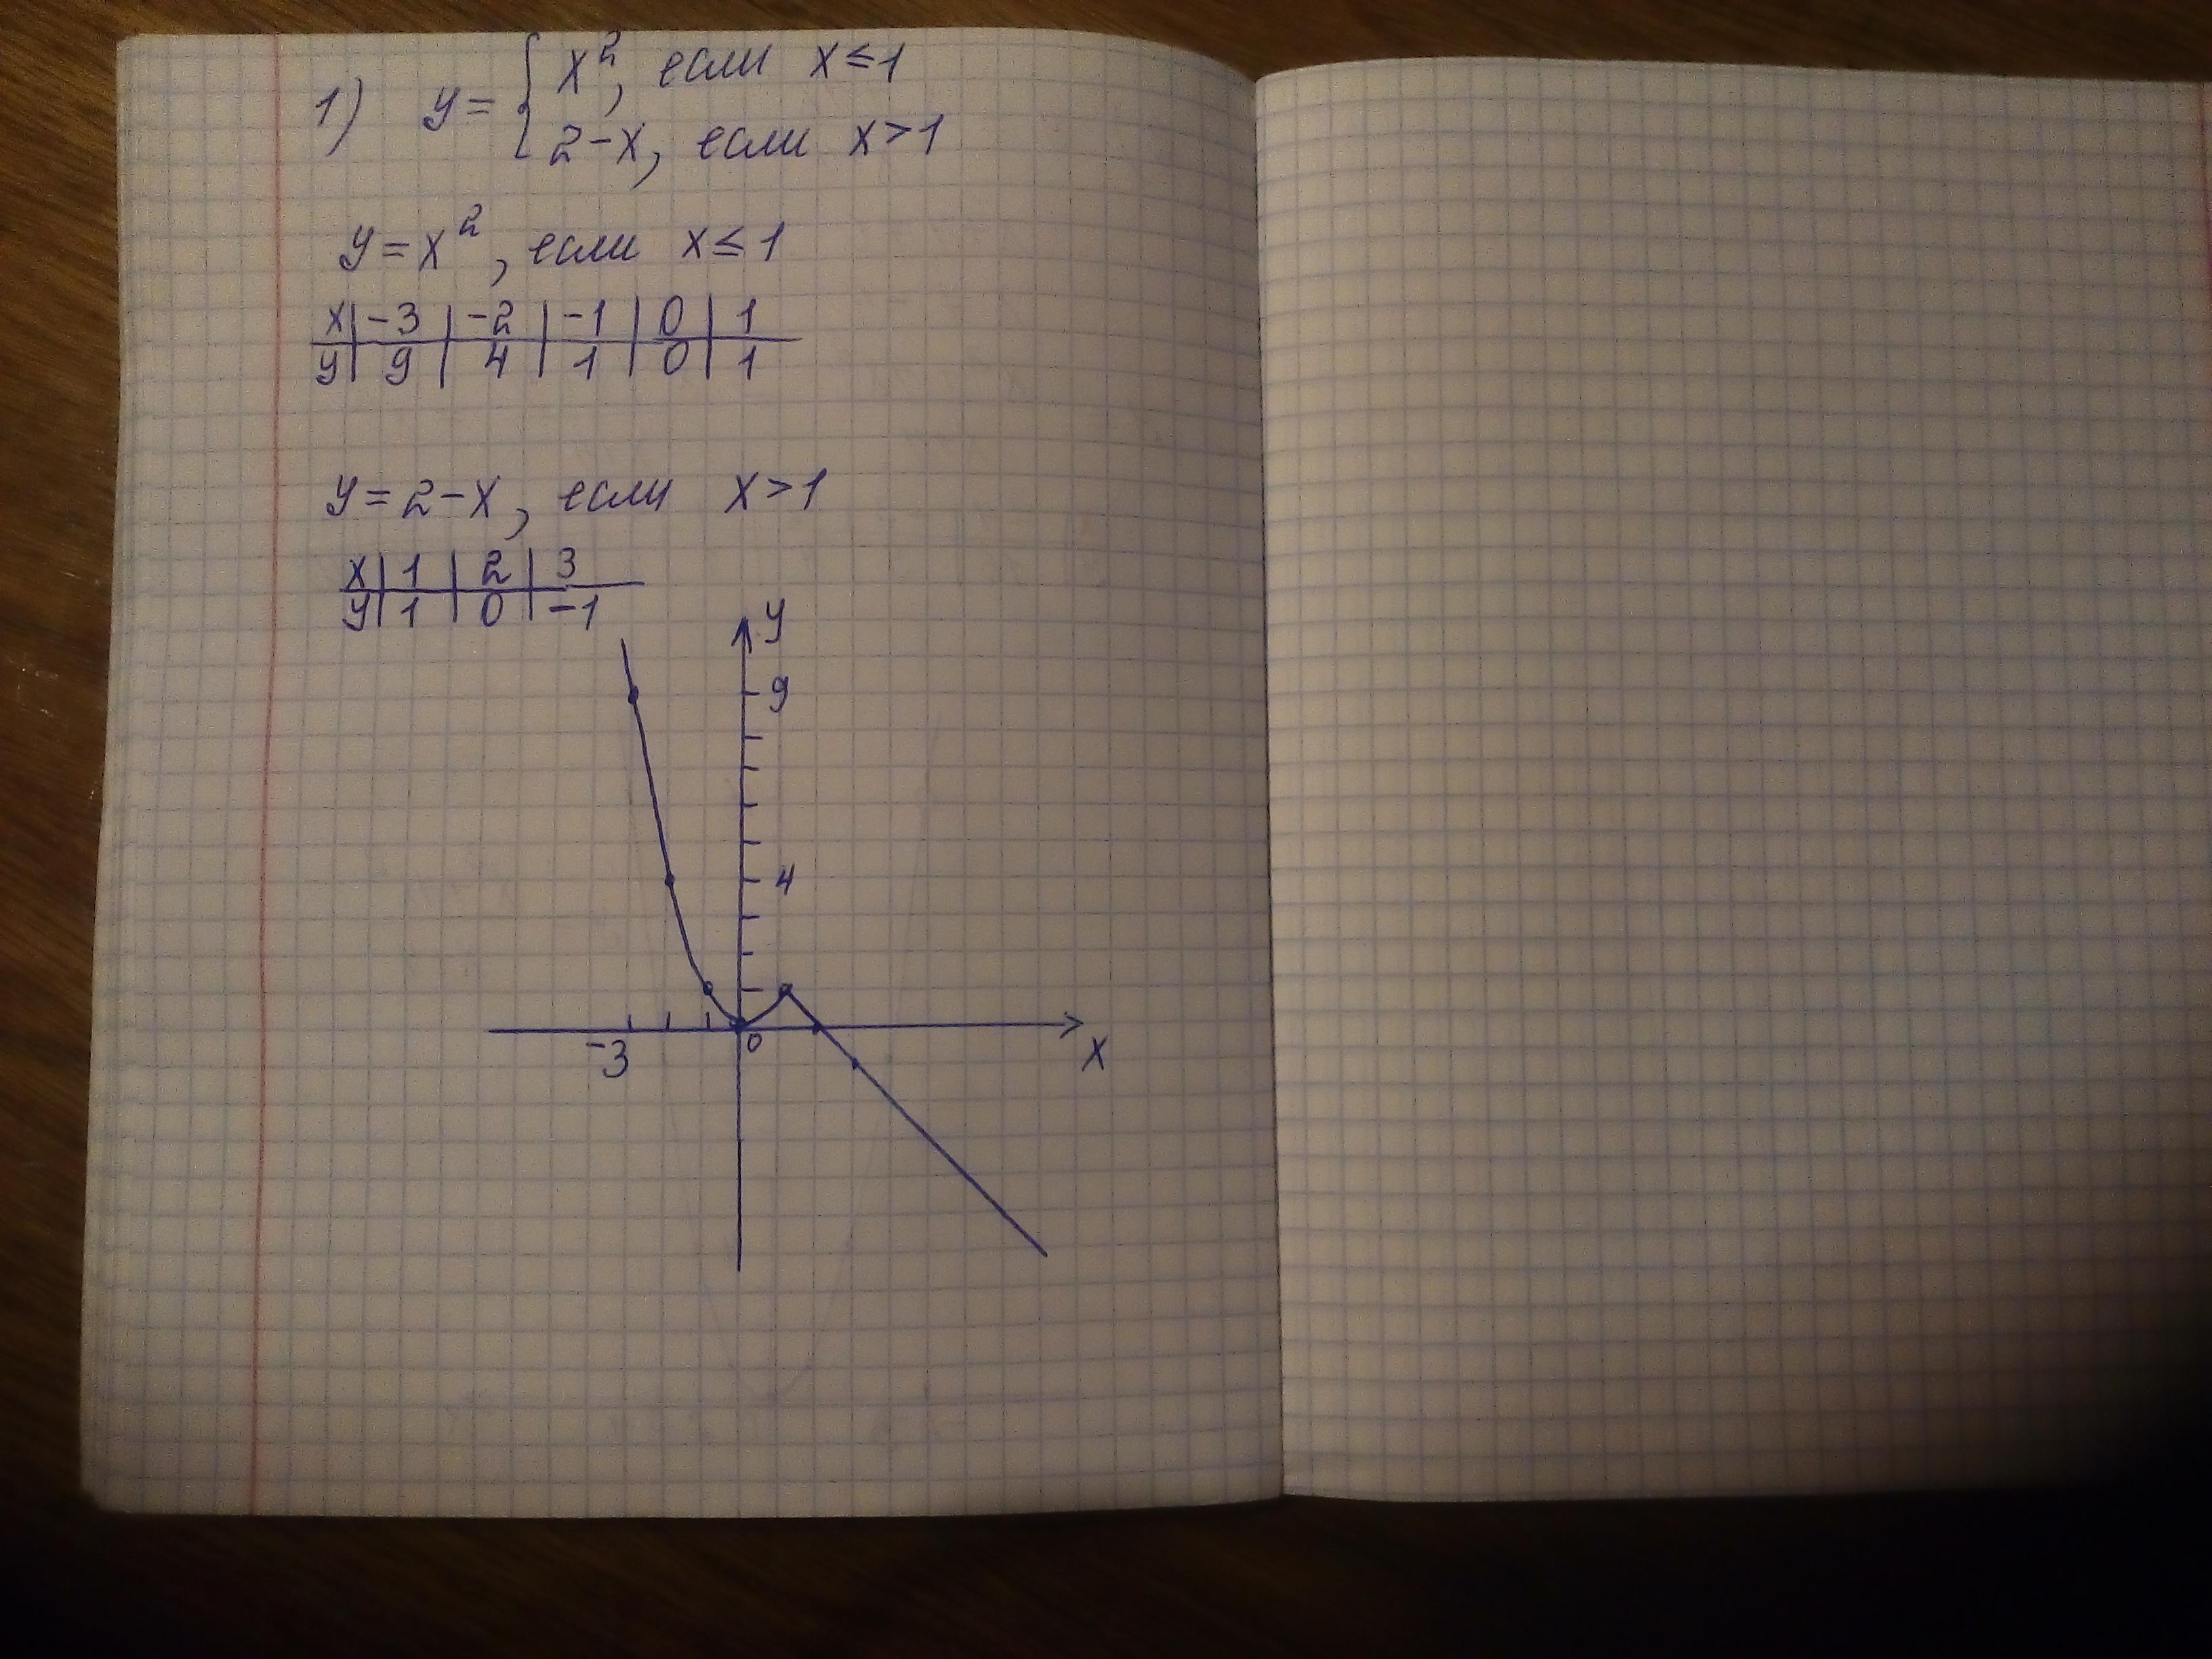 1) y = { x², если x ≤ 1
2 - x, если x > 1
y = x², если x ≤ 1
x | -3 | -2 | -1 | 0 | 1
y | 9 | 4 | 1 | 0 | 1
y = 2 - x, если x > 1
x | 1 | 2 | 3
y | 1 | 0 | -1
y
9
4
-3 0 x